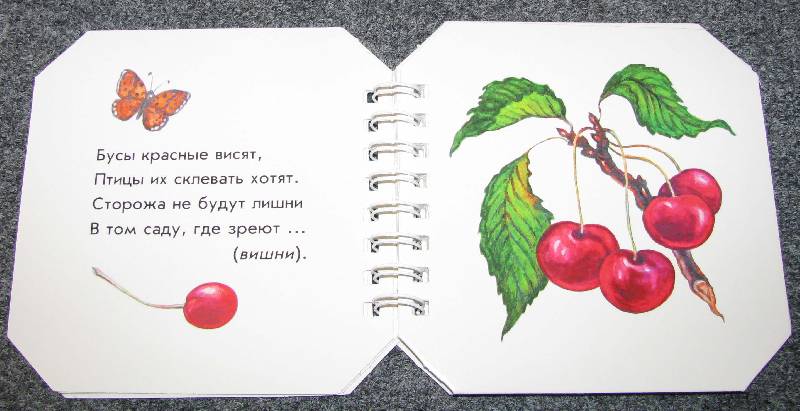 Бусы красные висят,
Птицы их склевать хотят.
Сторожа не будут лишни
В том саду, где зреют ...
(вишни).